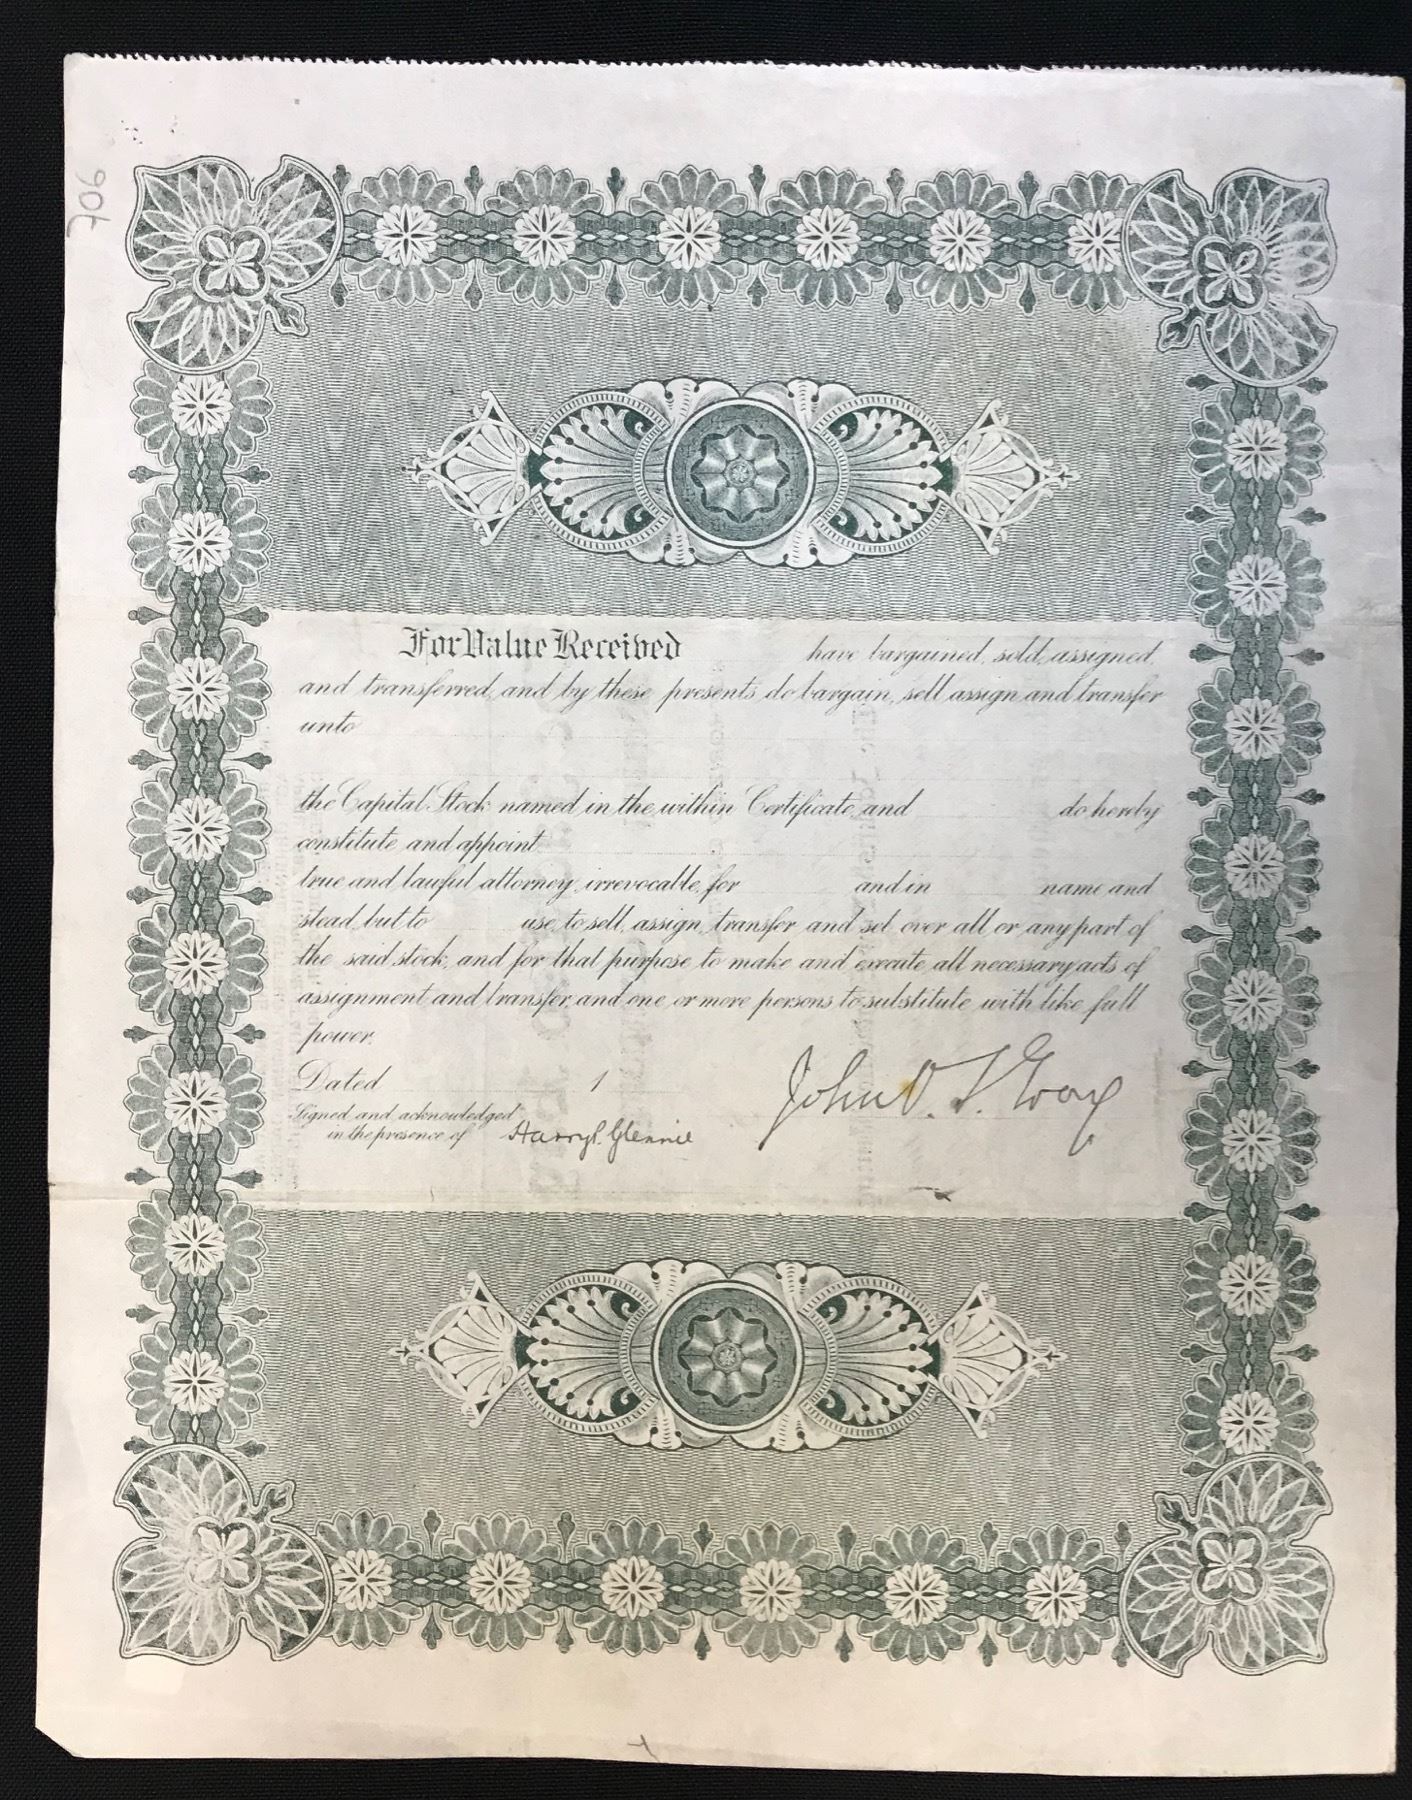 706
For Value Received have bargained, sold, assigned,
and transferred, and by these presents do bargain, sell assign and transfer
unto
the Capital Stock named in the within Certificate, and do hereby
constitute and appoint
true and lawful attorney, irrevocable, for and in name and
stead, but to use, to sell, assign, transfer and set over all or any part of
the said stock, and for that purpose to make and execute all necessary acts of
assignment and transfer, and one or more persons to substitute with like full
power.
Dated 1
John
Signed and acknowledged
in the presence of Harry P. Glennie